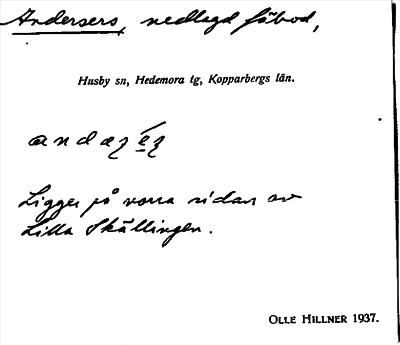 Andersers, nedlagd fäbod,
Husby sn, Hedemora tg, Kopparbergs län.
Ligger på norra sidan av
Lilla Skällingen.
OLLE HILLNER 1937.